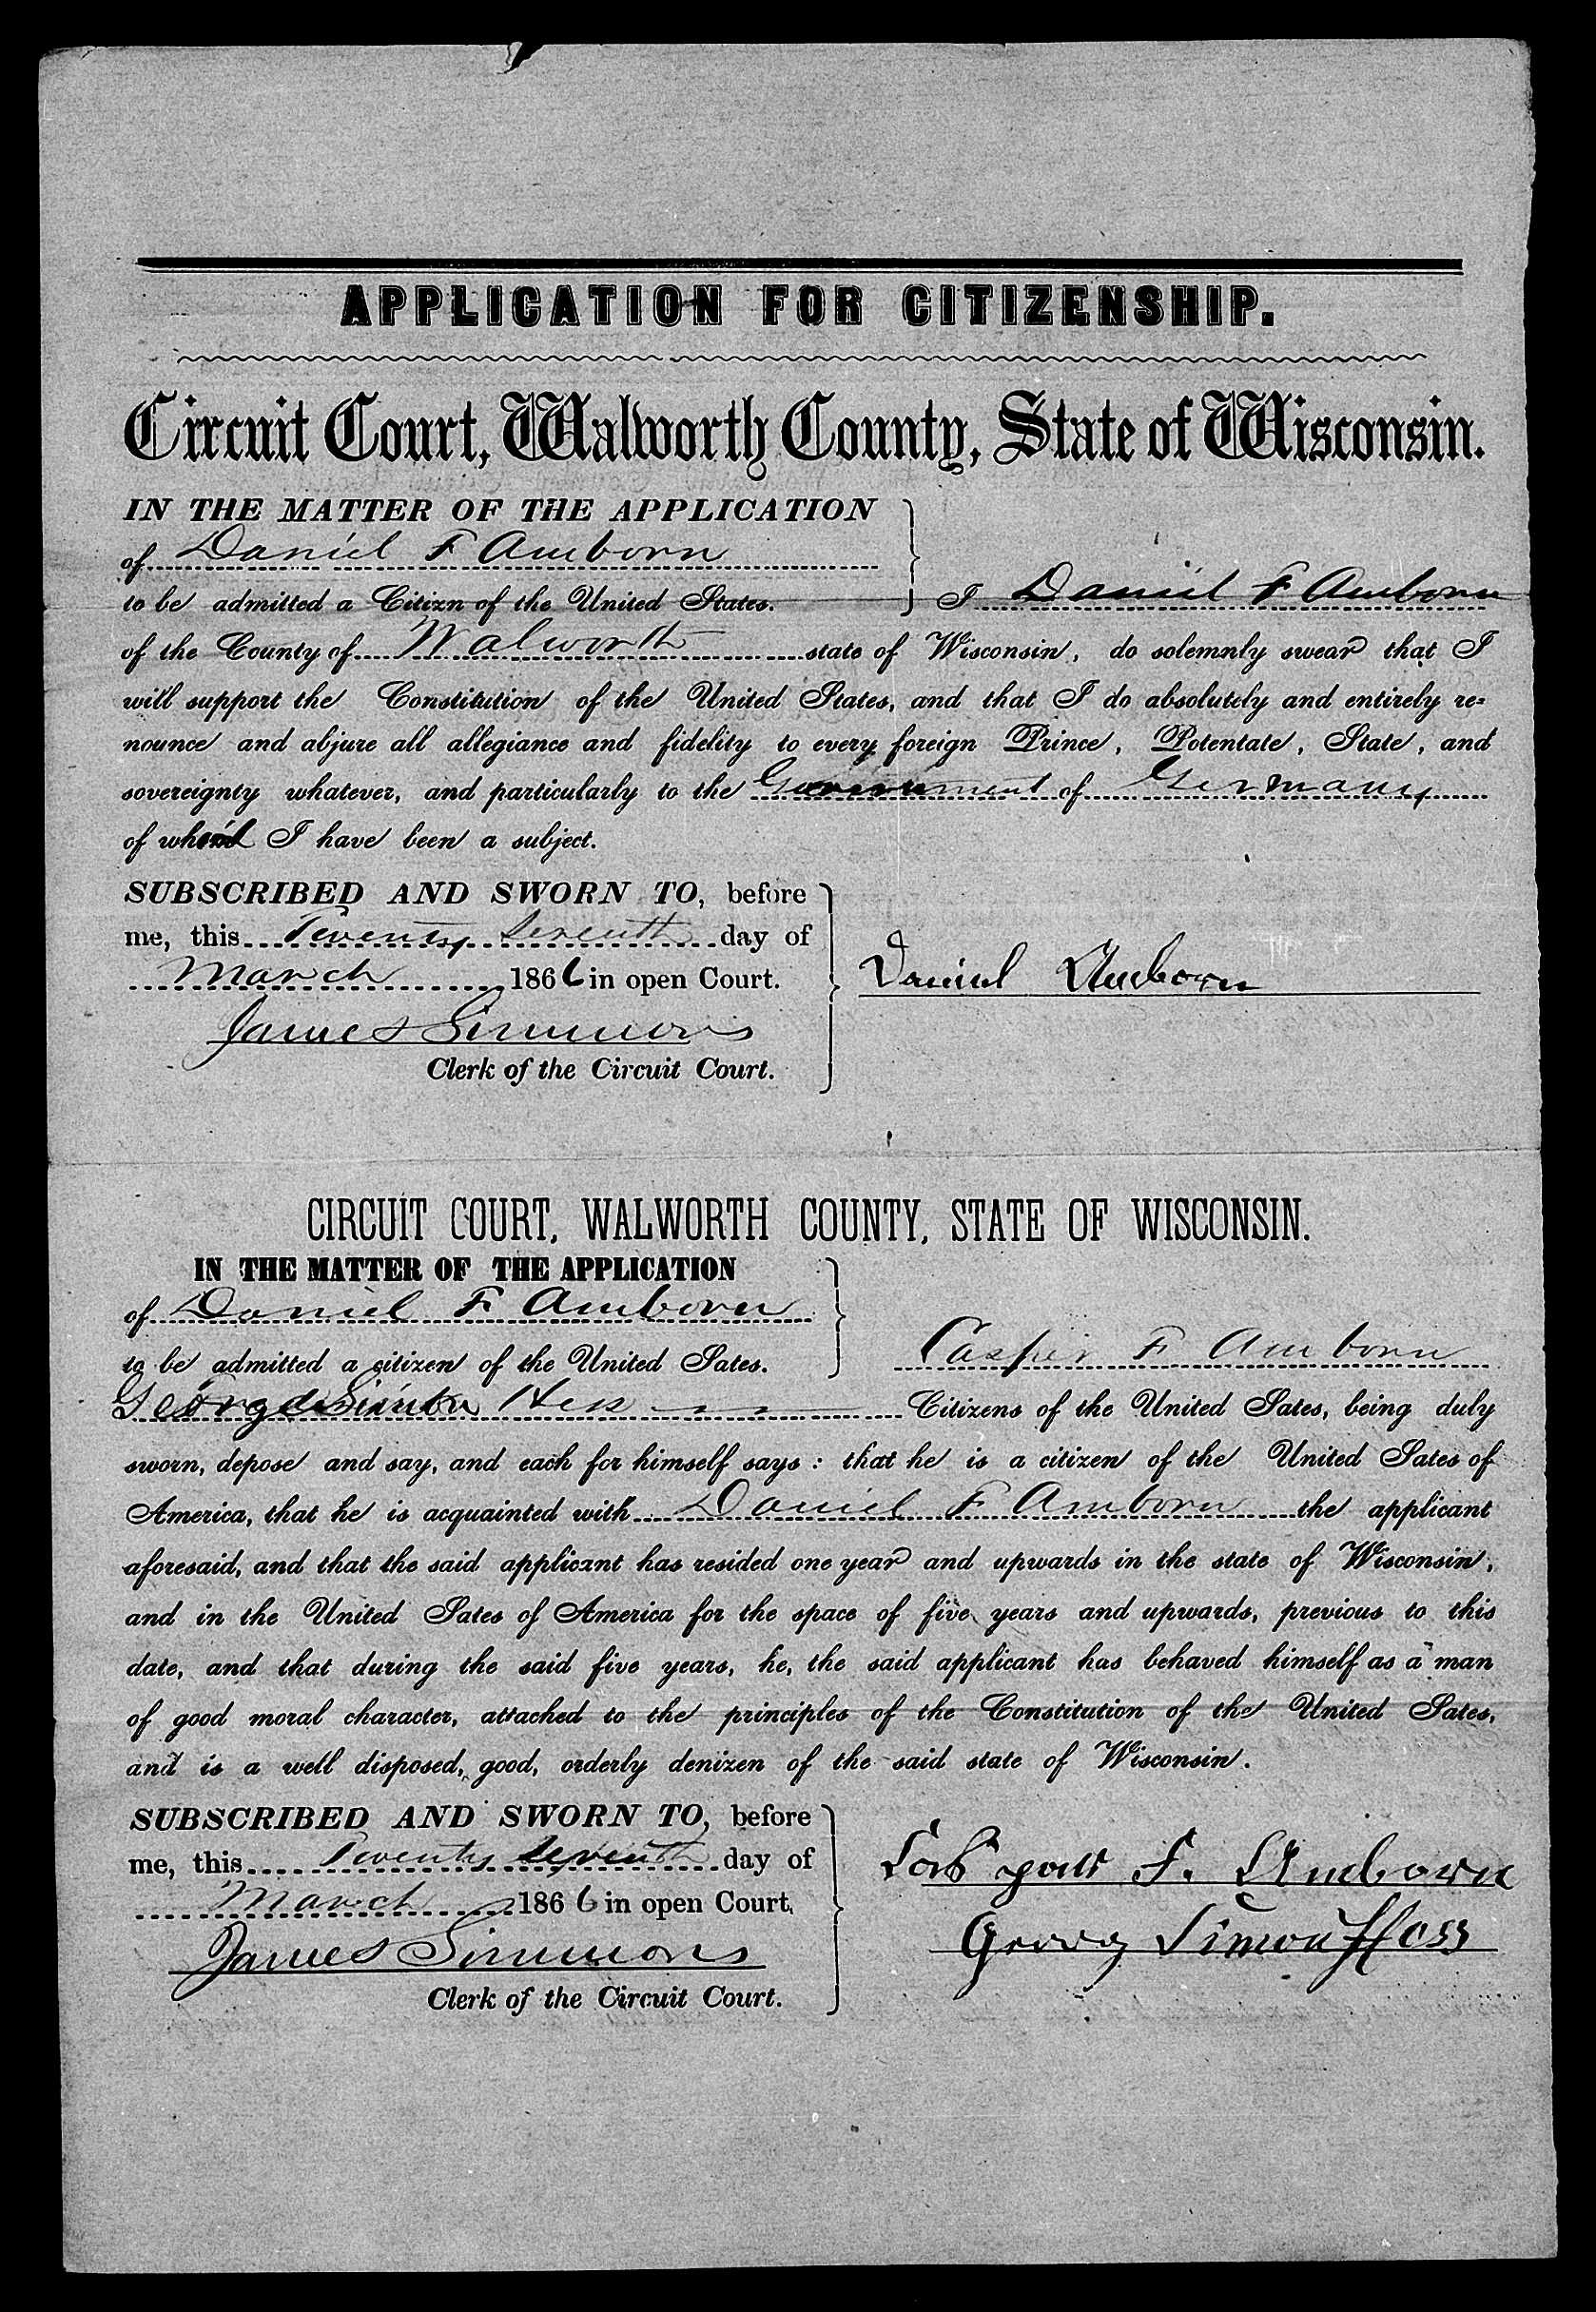 APPLICATION FOR CITIZENSHIP.
Circuit Court, Walworth County, State of Wisconsin.
IN THE MATTER OF THE APPLICATION
of Daniel F Amborn
to be admitted a Citizn of the United States. I Daniel F Amborn
of the County of Walworth state of Wisconsin, do solemnly swear that I
will support the Constitution of the United States, and that I do absolutely and entirely re-
nounce and abjure all allegiance and fidelity to every foreign Prince, Potentate, State, and
sovereignty whatever, and particularly to the Government of Germany
of which I have been a subject.
SUBSCRIBED AND SWORN TO, before
me, this Twenty Seventh day of
March 1866 in open Court.
Daniel Amborn
James Simmons
Clerk of the Circuit Court.
CIRCUIT COURT, WALWORTH COUNTY, STATE OF WISCONSIN.
IN THE MATTER OF THE APPLICATION
of Daniel F Amborn
to be admitted a citizen of the United Sates. Casper F Amborn
George Simon Hess Citizens of the United Sates, being duly
sworn, depose and say, and each for himself says: that he is a citizen of the United Sates of
America, that he is acquainted with Daniel F Amborn the applicant
aforesaid, and that the said applicant has resided one year and upwards in the state of Wisconsin,
and in the United Sates of America for the space of five years and upwards, previous to this
date, and that during the said five years, he, the said applicant has behaved himself as a man
of good moral character, attached to the principles of the Constitution of the United Sates,
and is a well disposed, good, orderly denizen of the said state of Wisconsin.
SUBSCRIBED AND SWORN TO, before
me, this Twenty Seventh day of
March 1866 in open Court.
F. Amborn
Georg Simon Hess
James Simmons
Clerk of the Circuit Court.